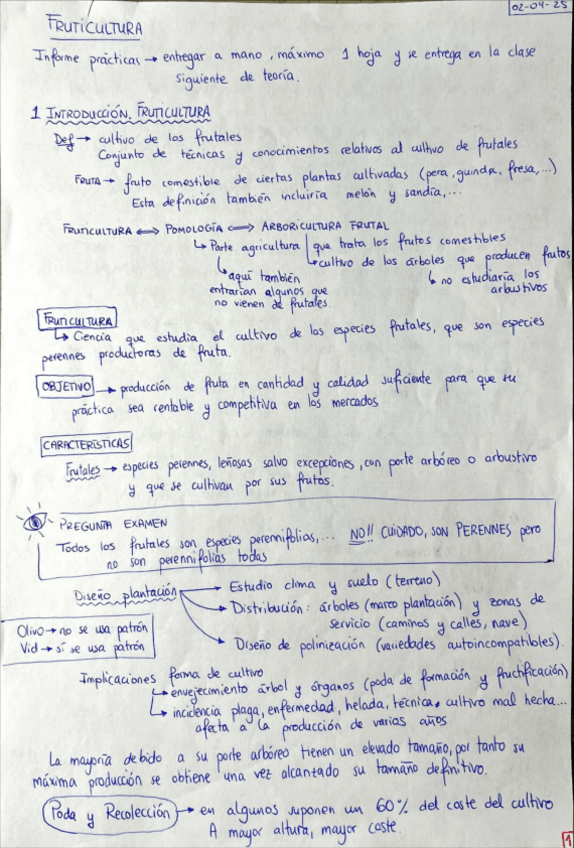 02-04-25
FRUTICULTURA
Informe prácticas → entregar a mano, máximo 1 hoja y se entrega en la clase
siguiente de teoría.
1 INTRODUCCIÓN. FRUTICULTURA
Def → cultivo de los frutales
Conjunto de técnicas y conocimientos relativos al cultivo de frutales
FRUTA → fruto comestible de ciertas plantas cultivadas (pera, guinda, fresa,...)
Esta definición también incluiría melón y sandía,...
FRUTICULTURA ⟺ POMOLOGÍA ⟺ ARBORICULTURA FRUTAL
↳ Parte agricultura que trata los frutos comestibles
↳ cultivo de los árboles que producen frutos
↳ aquí también
entrarían algunos que
no vienen de frutales.
↳ no estudiaría los
arbustivos
FRUTICULTURA
↳ Ciencia que estudia el cultivo de las especies frutales, que son especies
perennes productoras de fruta.
OBJETIVO → producción de fruta en cantidad y calidad suficiente para que su
práctica sea rentable y competitiva en los mercados
CARACTERÍSTICAS
Frutales → especies perennes, leñosas salvo excepciones, con porte arbóreo o arbustivo
y que se cultivan por sus frutos.
PREGUNTA EXAMEN
Todos los frutales son especies perennifolias,... NO!! CUIDADO, SON PERENNES pero
no son perennifolias todas
Diseño plantación → Estudio clima y suelo (terreno)
→ Distribución: árboles (marco plantación) y zonas de
servicio (caminos y calles, nave)
→ Diseño de polinización (variedades autoincompatibles).
Olivo → no se usa patrón
Vid → sí se usa patrón
Implicaciones forma de cultivo
↳ envejecimiento árbol y órganos (poda de formación y fructificación)
↳ incidencia plaga, enfermedad, helada, técnica cultivo mal hecha...
afecta a la producción de varios años
La mayoría debido a su porte arbóreo tienen un elevado tamaño, por tanto su
máxima producción se obtiene una vez alcanzado su tamaño definitivo.
Poda y Recolección → en algunos suponen un 60% del coste del cultivo
A mayor altura, mayor coste.
1